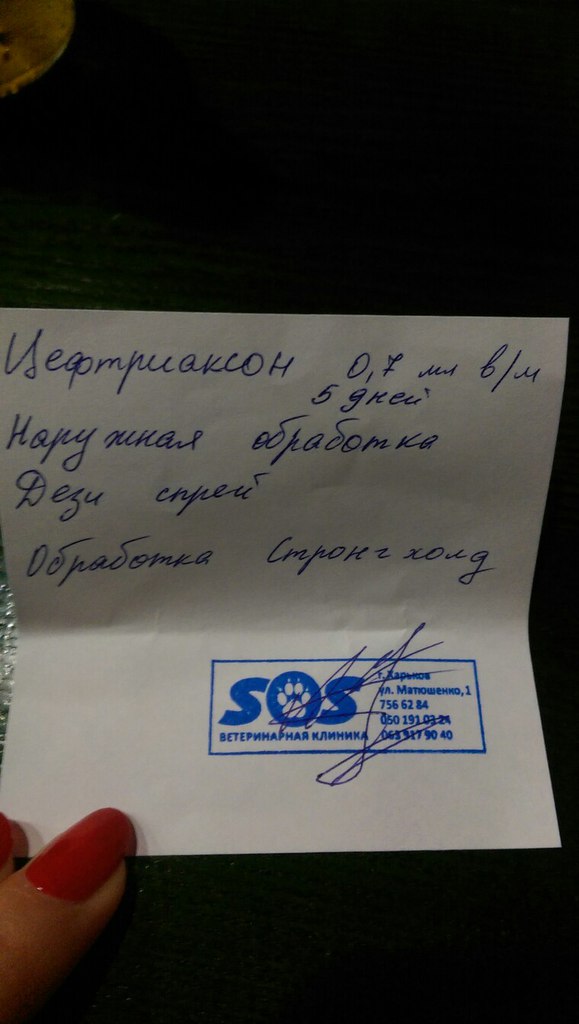 Цефтриаксон 0,7 мл в/м
5 дней
Наружная обработка
Дези спрей
Обработка Стронгхолд
SOS
ВЕТЕРИНАРНАЯ КЛИНИКА
г. Харьков
ул. Матюшенко, 1
756 62 84
050 191 03 24
063 917 90 40